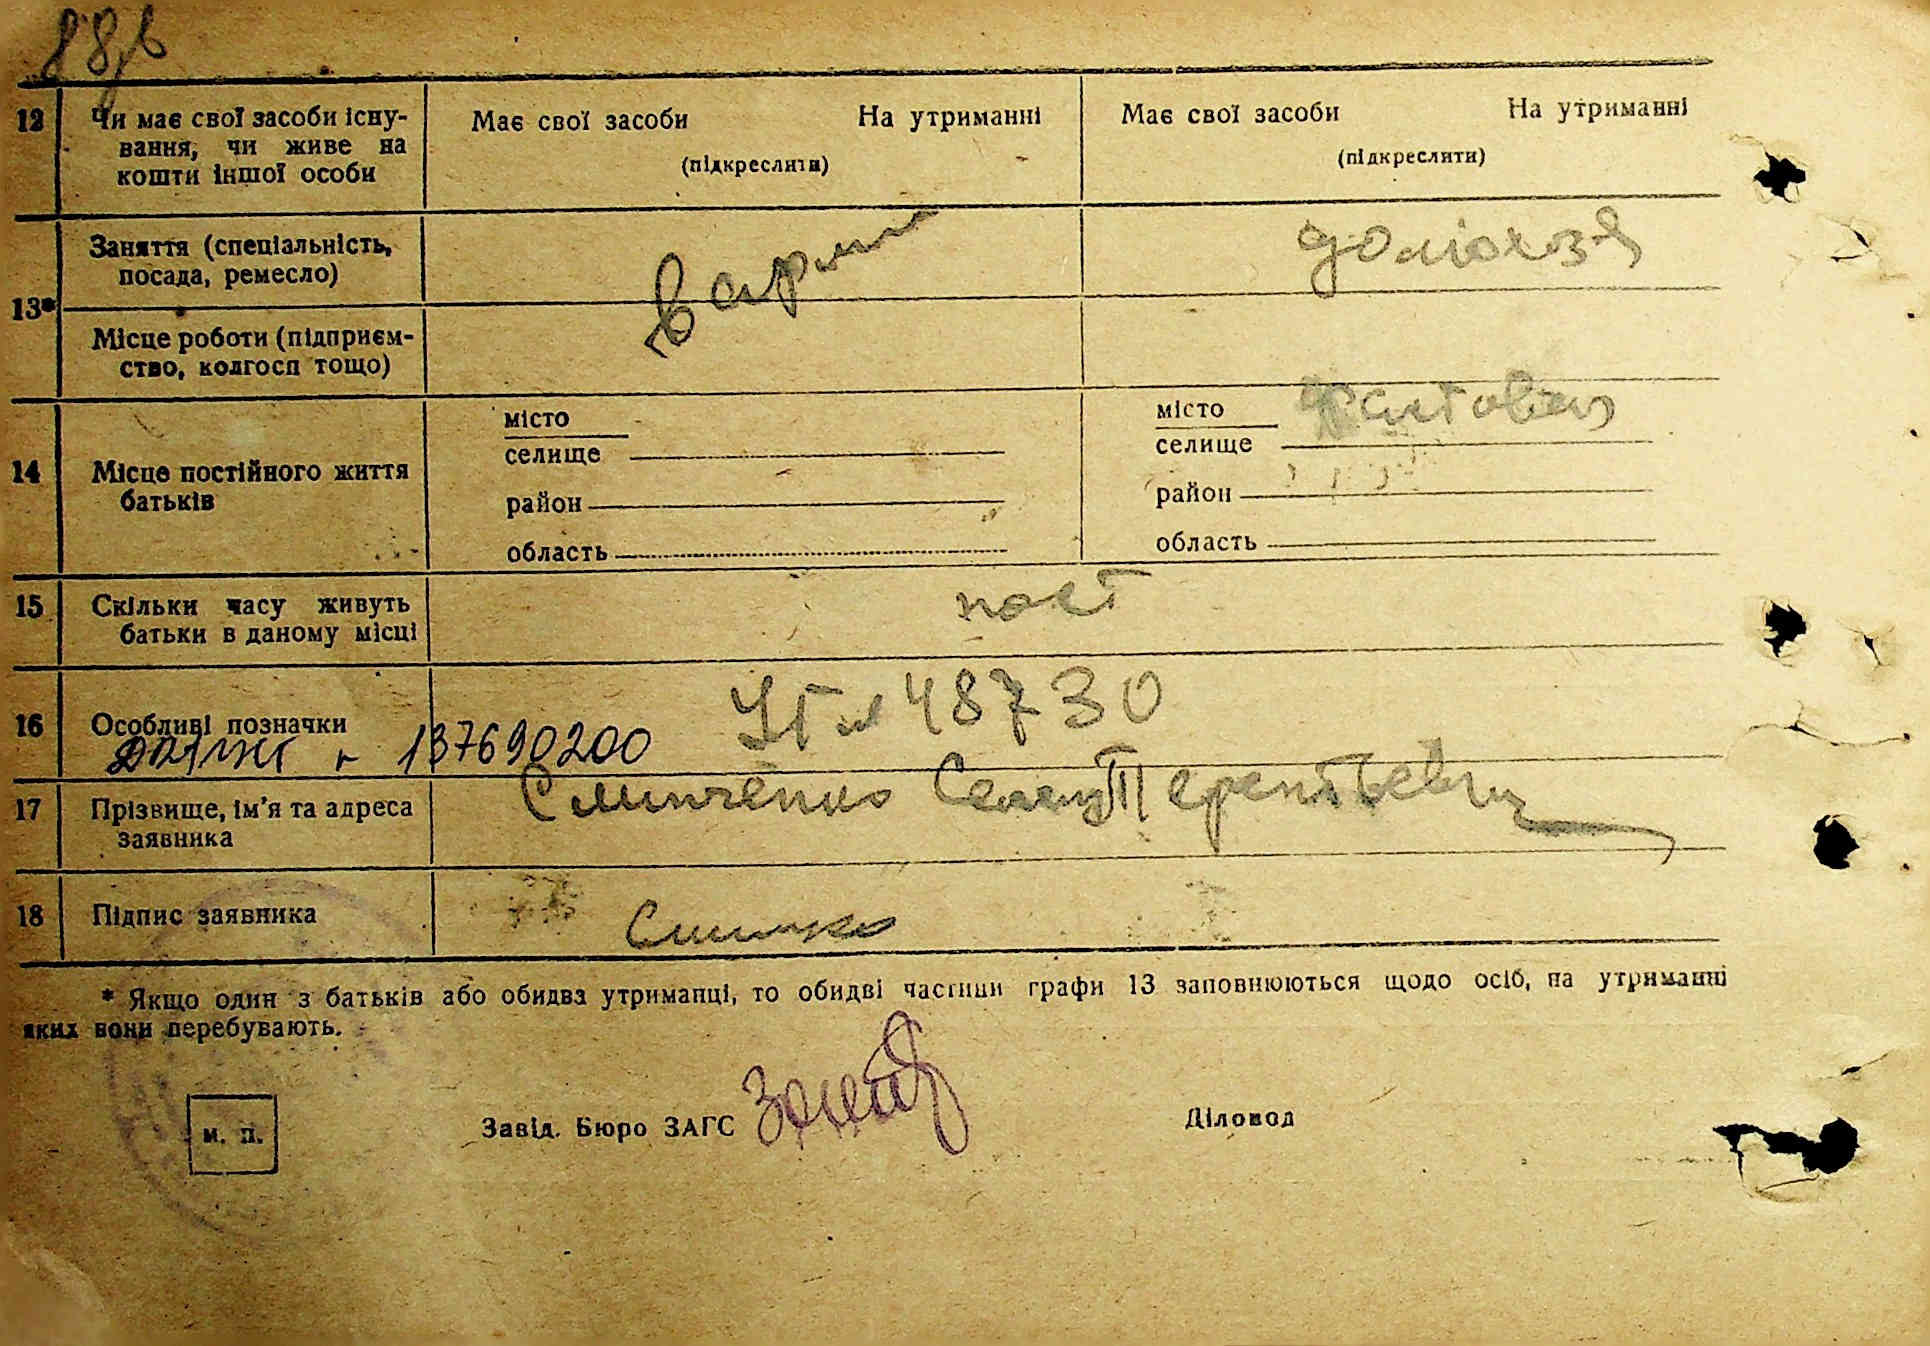 12 Чи має свої засоби існу-
вання, чи живе на
кошти іншої особи
Має свої засоби На утриманні
(підкреслити)
Має свої засоби На утриманні
(підкреслити)
13*
Заняття (спеціальність,
посада, ремесло)
в армии
домохоз
Місце роботи (підприєм-
ство, колгосп тощо)
14 Місце постійного життя
батьків
місто
селище
район
область
місто
селище
район
область
15 Скільки часу живуть
батьки в даному місці
пост
16 Особливі позначки
48730
137690200
17 Прізвище, ім'я та адреса
заявника
Терентьевич
18 Підпис заявника
* Якщо один з батьків або обидва утриманці, то обидві частини графи 13 заповнюються щодо осіб, на утриманні
яких вони перебувають.
м. п.
Завід. Бюро ЗАГС
Діловод